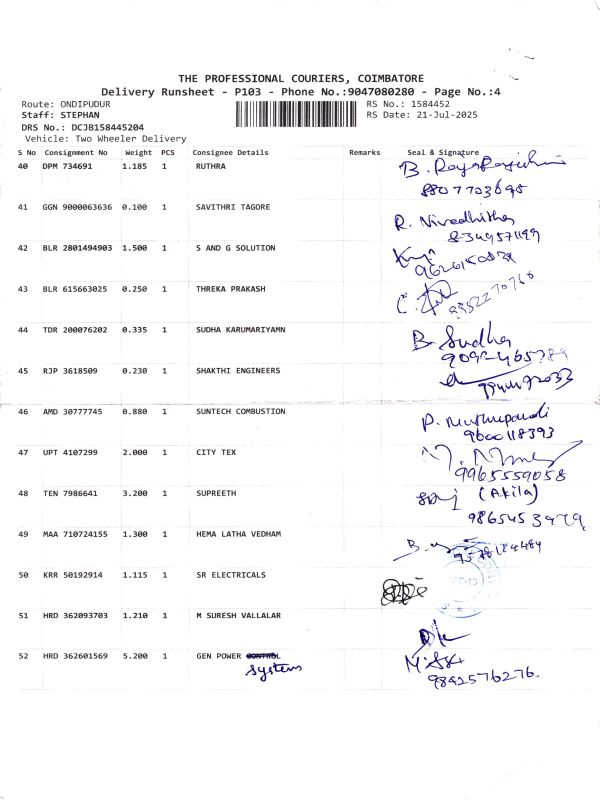 THE PROFESSIONAL COURIERS, COIMBATORE
Delivery Runsheet - P103 - Phone No.:9047080280 - Page No.:4
Route: ONDIPUDUR RS No.: 1584452
Staff: STEPHAN RS Date: 21-Jul-2025
DRS No.: DCJB158445204
Vehicle: Two Wheeler Delivery
S No Consignment No Weight PCS Consignee Details Remarks Seal & Signature
40 DPM 734691 1.185 1 RUTHRA B.
8807703695
41 GGN 9000063636 0.100 1 SAVITHRI TAGORE R. Nivedhitha
42 BLR 2801494903 1.500 1 S AND G SOLUTION
43 BLR 615663025 0.250 1 THREKA PRAKASH
44 TDR 200076202 0.335 1 SUDHA KARUMARIYAMN B. Sudha
45 RJP 3618509 0.230 1 SHAKTHI ENGINEERS
46 AMD 30777745 0.880 1 SUNTECH COMBUSTION P. Muthupandi
9600118393
47 UPT 4107299 2.000 1 CITY TEX
9965559058
48 TEN 7986641 3.200 1 SUPREETH (Akila)
9865453979
49 MAA 710724155 1.300 1 HEMA LATHA VEDHAM B.
50 KRR 50192914 1.115 1 SR ELECTRICALS
51 HRD 362093703 1.210 1 M SURESH VALLALAR
52 HRD 362601569 5.200 1 GEN POWER CONTROL
System
9842576276